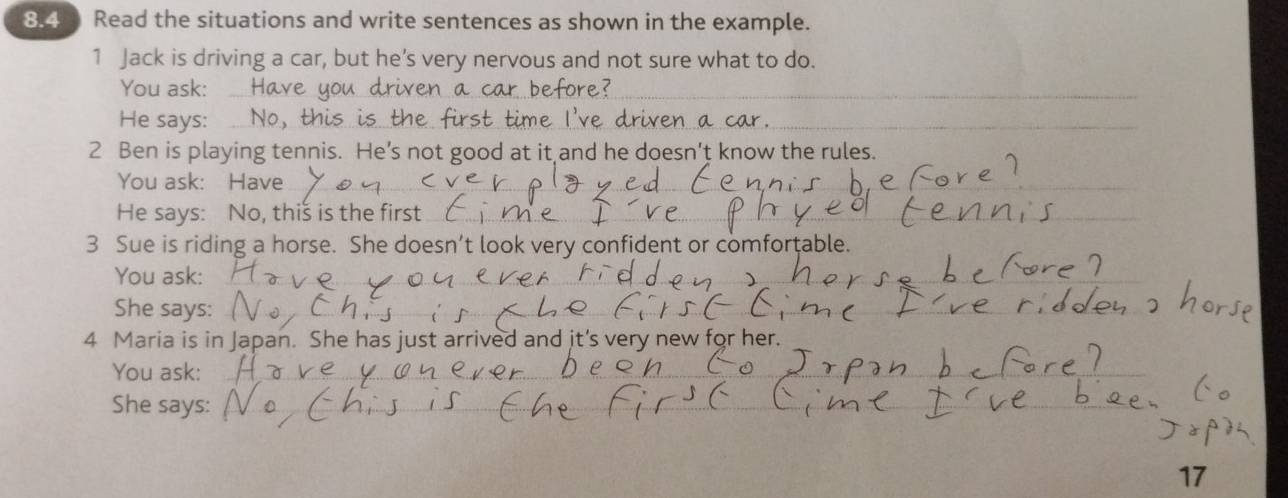 8.4 Read the situations and write sentences as shown in the example.
1 Jack is driving a car, but he's very nervous and not sure what to do.
You ask: Have you driven a car before?
He says: No, this is the first time I've driven a car.
2 Ben is playing tennis. He's not good at it and he doesn't know the rules.
You ask: Have you ever played tennis before?
He says: No, this is the first time I've played tennis
3 Sue is riding a horse. She doesn't look very confident or comfortable.
You ask: Have you ever ridden a horse before?
She says: No, this is the first time I've ridden a horse
4 Maria is in Japan. She has just arrived and it's very new for her.
You ask: Have you ever been to Japan before?
She says: No, this is the first time I've been to
Japan.
17